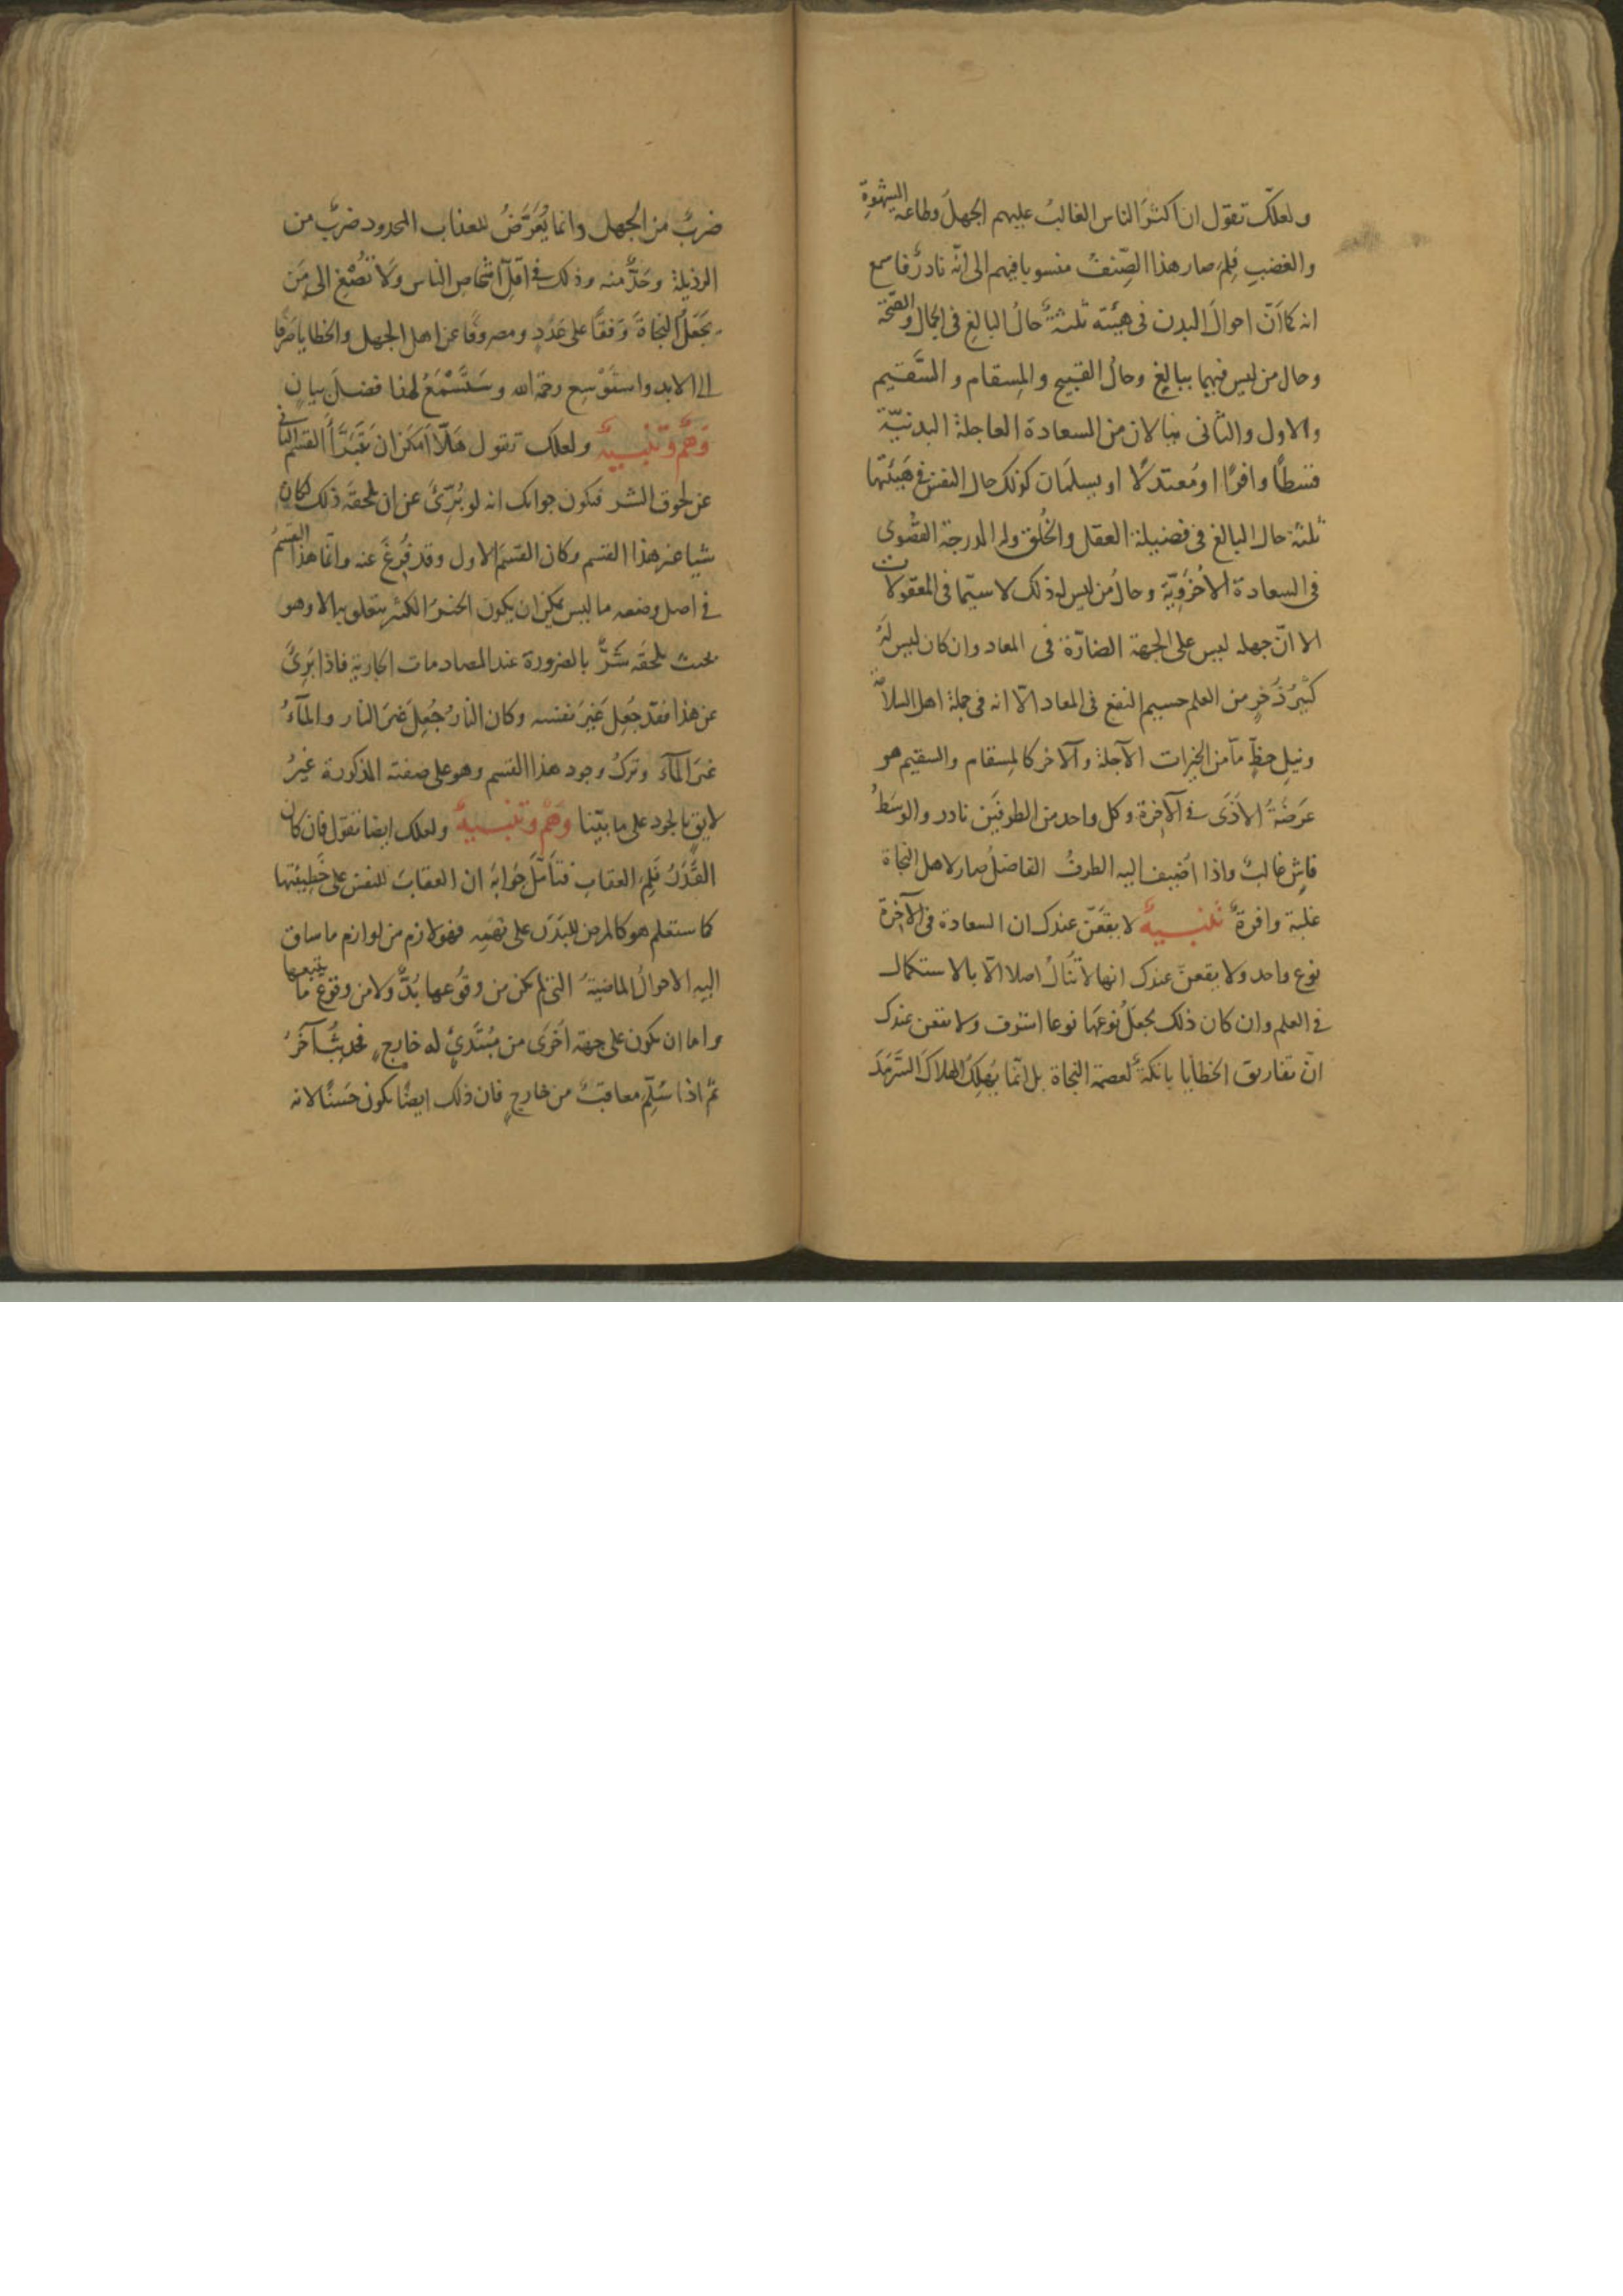 ولعلّك تقول ان اكثرَ الناس الغالبُ عليهم الجهلُ وطاعة الشهوةِ
والغضبِ فلِمَ صار هذا الصِّنفُ منسوبا فيهم الى انّه نادرٌ فاسمع
انه كما اَنّ احوالَ البدن فى هيئته ثلثةٌ حالُ البالغِ فى الجمال والصّحّة
وحال من ليس فيهما ببالغٍ وحالُ القبيح والمِسقام والسَّقيم
والاول والثانى ينالان من السعادة العاجلة البدنيّة
قسطًا وافرًا او مُعتدلًا او يسلمَان كذلك حال النفس فى هَيئتها
ثلثة حال البالغ فى فضيلة العقل والخُلق وله الدرجة القُصْوى
فى السعادة الاُخرَويّة وحالُ من ليس له ذلك لا سيّما فى المعقولات
الا انّ جهله ليس على الجهة الضارّة فى المعاد وان كان ليس لَهُ
كثيرُ ذُخرٍ من العلم جسيم النفع فى المعاد الّا انه فى جملة اهل السلامة
ونيلِ حظٍّ مّا من الخيرات الآجلة والآخر كالمِسقام والسقيم هو
عَرضَةُ الاَذَى فى الآخرة وكل واحد من الطرفَين نادر والوسَطُ
فاشٍ غالبٌ واذا اُضيف اليه الطرفُ الفاضلُ صار لاهل النجاة
غلبة وافرةٌ تنبيهٌ لا يقعَنّ عندك ان السعادة فى الآخرة
نوع واحد ولا يقعنّ عندك انها لا تُنالُ اصلا الّا بالاستكمال
فى العلم وان كان ذلك يجعلُ نوعَها نوعا اشرف ولا يقعن عندك
انّ تفاريق الخطايا باتكةٌ لعصمة النجاة بل انّما يُهلِكُ الهلاكَ السَّرمَدَ
ضربٌ من الجهل وانما يُعَرَّضُ للعذاب المحدود ضربٌ من
الرذيلة وحَدٌّ منه وذلك فى اقلّ اشخاص الناس وَلا تُصْغِ الى مَن
يَجعَلُ النجاةَ وَقفًا على عَدَدٍ ومصروفًا عن اهل الجهل والخطايا صَرفًا
الى الابد واستَوْسِع رحمة الله وسَتَسْمَعُ لهذا فضلَ بيانٍ
وَهْمٌ وتنبيهٌ ولعلك تقول هَلّا اَمكَن ان يَتَبَرَّأَ القسم الثانى
عن لحوق الشر فيكون جوابك انه لو بُرِّئَ عن ان يلحقَه ذلك لكان
شيا غير هذا القسم وكان القسمَ الاول وقد فُرِغَ عنه وانّما هذا القسمُ
فى اصل وضعه ما ليس يمكن ان يكون الخيرُ الكثير يتعلق به الا وهو
بحيث يلحقَه شَرٌّ بالضرورة عند المصادمات الجارية فاذا بُرِئَ
عن هذا فقد جُعِل غَيرَ نفسه وكان النارُ جُعِل غيرَ النار والمآءُ
غيرَ المآء وتركُ وجود هذا القسم وهو على صفته المذكورة غيرُ
لايقٍ بالجود على ما بيّنا وَهْمٌ وتنبيهٌ ولعلك ايضا تقول فان كان
القَدَرُ فَلِمَ العقاب فتأمّل جَوابَه ان العقابَ للنفس على خَطيئتها
كما ستعلم هو كالمرض للبَدَن على نَهَمِه فهو لازم من لوازم ما ساق
اليه الاحوالُ الماضيةُ التى لم يكن من وقُوعها بُدٌّ ولا من وقوع ما يتبعها
واما ان يكون على جهة اخرى من مُبْتَدِئٍ له خارجٍ فحديثٌ آخَرُ
ثمّ اذا سُلِّمَ معاقبٌ من خارجٍ فان ذلك ايضًا يكون حَسَنًا لانه